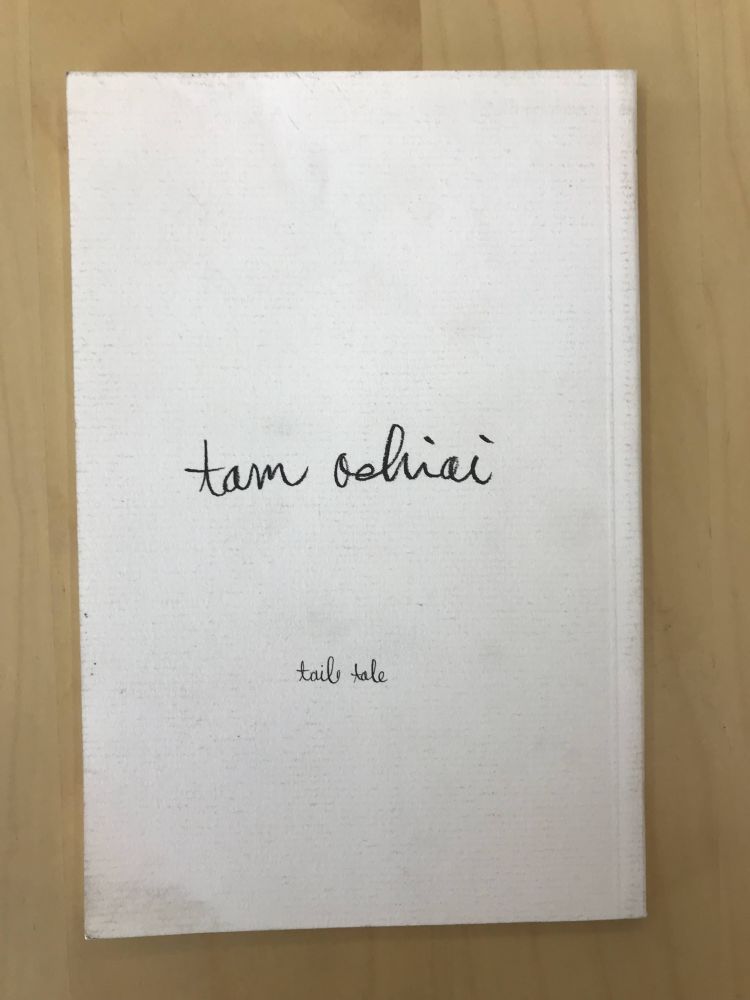 tam ochiai
tail tale